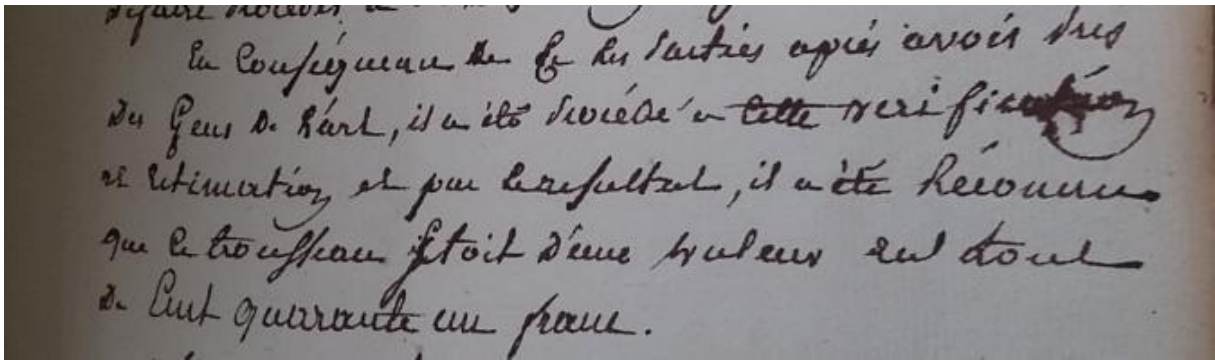 En Conséquence de Ce les Parties après avoir pris
des Gens de l'art, il a été procédé a cette verification
et Estimation, et par le resultat, il a été Réconnu
que le trousseau Etoit d'une valeur en tout
de Cent quarante un franc.